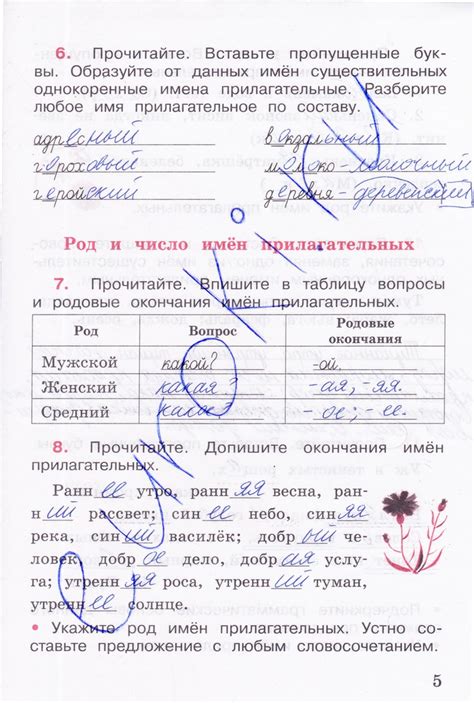 6. Прочитайте. Вставьте пропущенные бук-
вы. Образуйте от данных имён существительных
однокоренные имена прилагательные. Разберите
любое имя прилагательное по составу.
адресный вокзальный
гороховый молоко - молочный
геройский деревня - деревенский
Род и число имён прилагательных
7. Прочитайте. Впишите в таблицу вопросы
и родовые окончания имён прилагательных.
Род Вопрос Родовые окончания
Мужской какой? -ой,
Женский какая? -ая, -яя.
Средний какое? -ое; -ее.
8. Прочитайте. Допишите окончания имён
прилагательных.
Раннее утро, ранняя весна, ран-
ний рассвет; синее небо, синяя
река, синий василёк; добрый че-
ловек, доброе дело, добрая услу-
га; утренняя роса, утренний туман,
утреннее солнце.
• Укажите род имён прилагательных. Устно со-
ставьте предложение с любым словосочетанием.
5